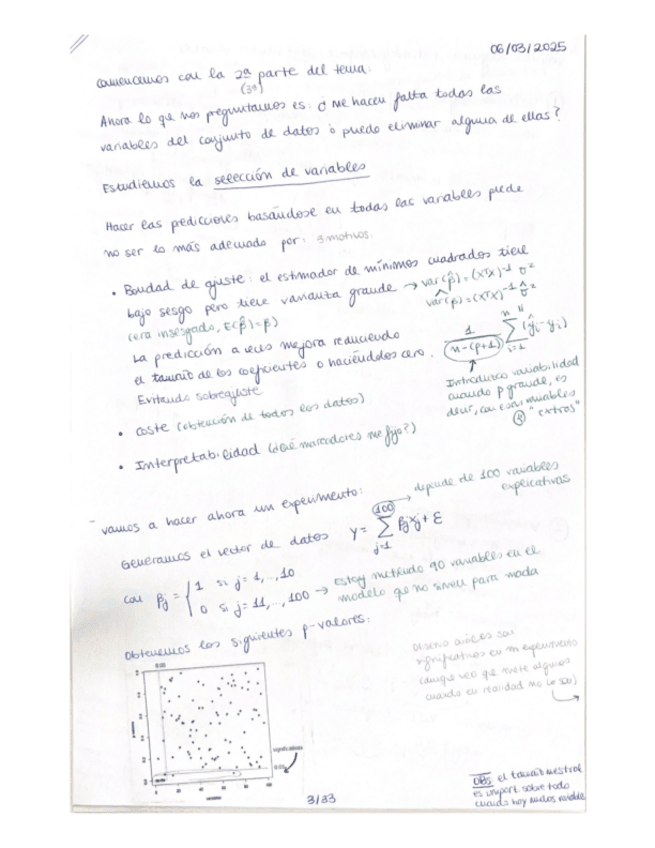 06/03/2025
comencemos con la 2ª parte del tema:
(3ª)
Ahora lo que nos preguntamos es: ¿ me hacen falta todas las
variables del conjunto de datos o puedo eliminar alguna de ellas?
Estudiemos la selección de variables
Hacer las predicciones basándose en todas las variables puede
no ser lo más adecuado por: 3 motivos.
• Bondad de ajuste: el estimador de mínimos cuadrados tiene
bajo sesgo pero tiene varianza grande → var(β̂)=(XTX)⁻¹ σ²
(era insesgado, E(β̂)=β)
var(β̂)=(XTX)⁻¹ σ̂²
La predicción a veces mejora reduciendo
el tamaño de los coeficientes o haciéndolos cero.
Evitando sobreajuste
1/(n-(p+1)) Σ i=1 n (ŷi-yi)
Introduzco variabilidad
cuando p grande, es
decir, con variables
"extras"
• Coste (obtención de todos los datos)
• Interpretabilidad (¿Qué marcadores me fijo?)
- vamos a hacer ahora un experimento:
depende de 100 variables
explicativas
Generamos el vector de datos y = Σ j=1 100 βjxj + ε
con βj = { 1 si j=1,..,10
0 si j=11,..., 100 → Estoy metiendo 90 variables en el
modelo que no sirven para nada
Obtenemos los siguientes p-valores:
Observo cuáles son
significativos en mi experimento
(aunque veo que mete algunos
cuando en realidad no lo son)
0.05
OBS el tamaño muestral
es import. sobre todo
cuando hay muchas variables
3/33